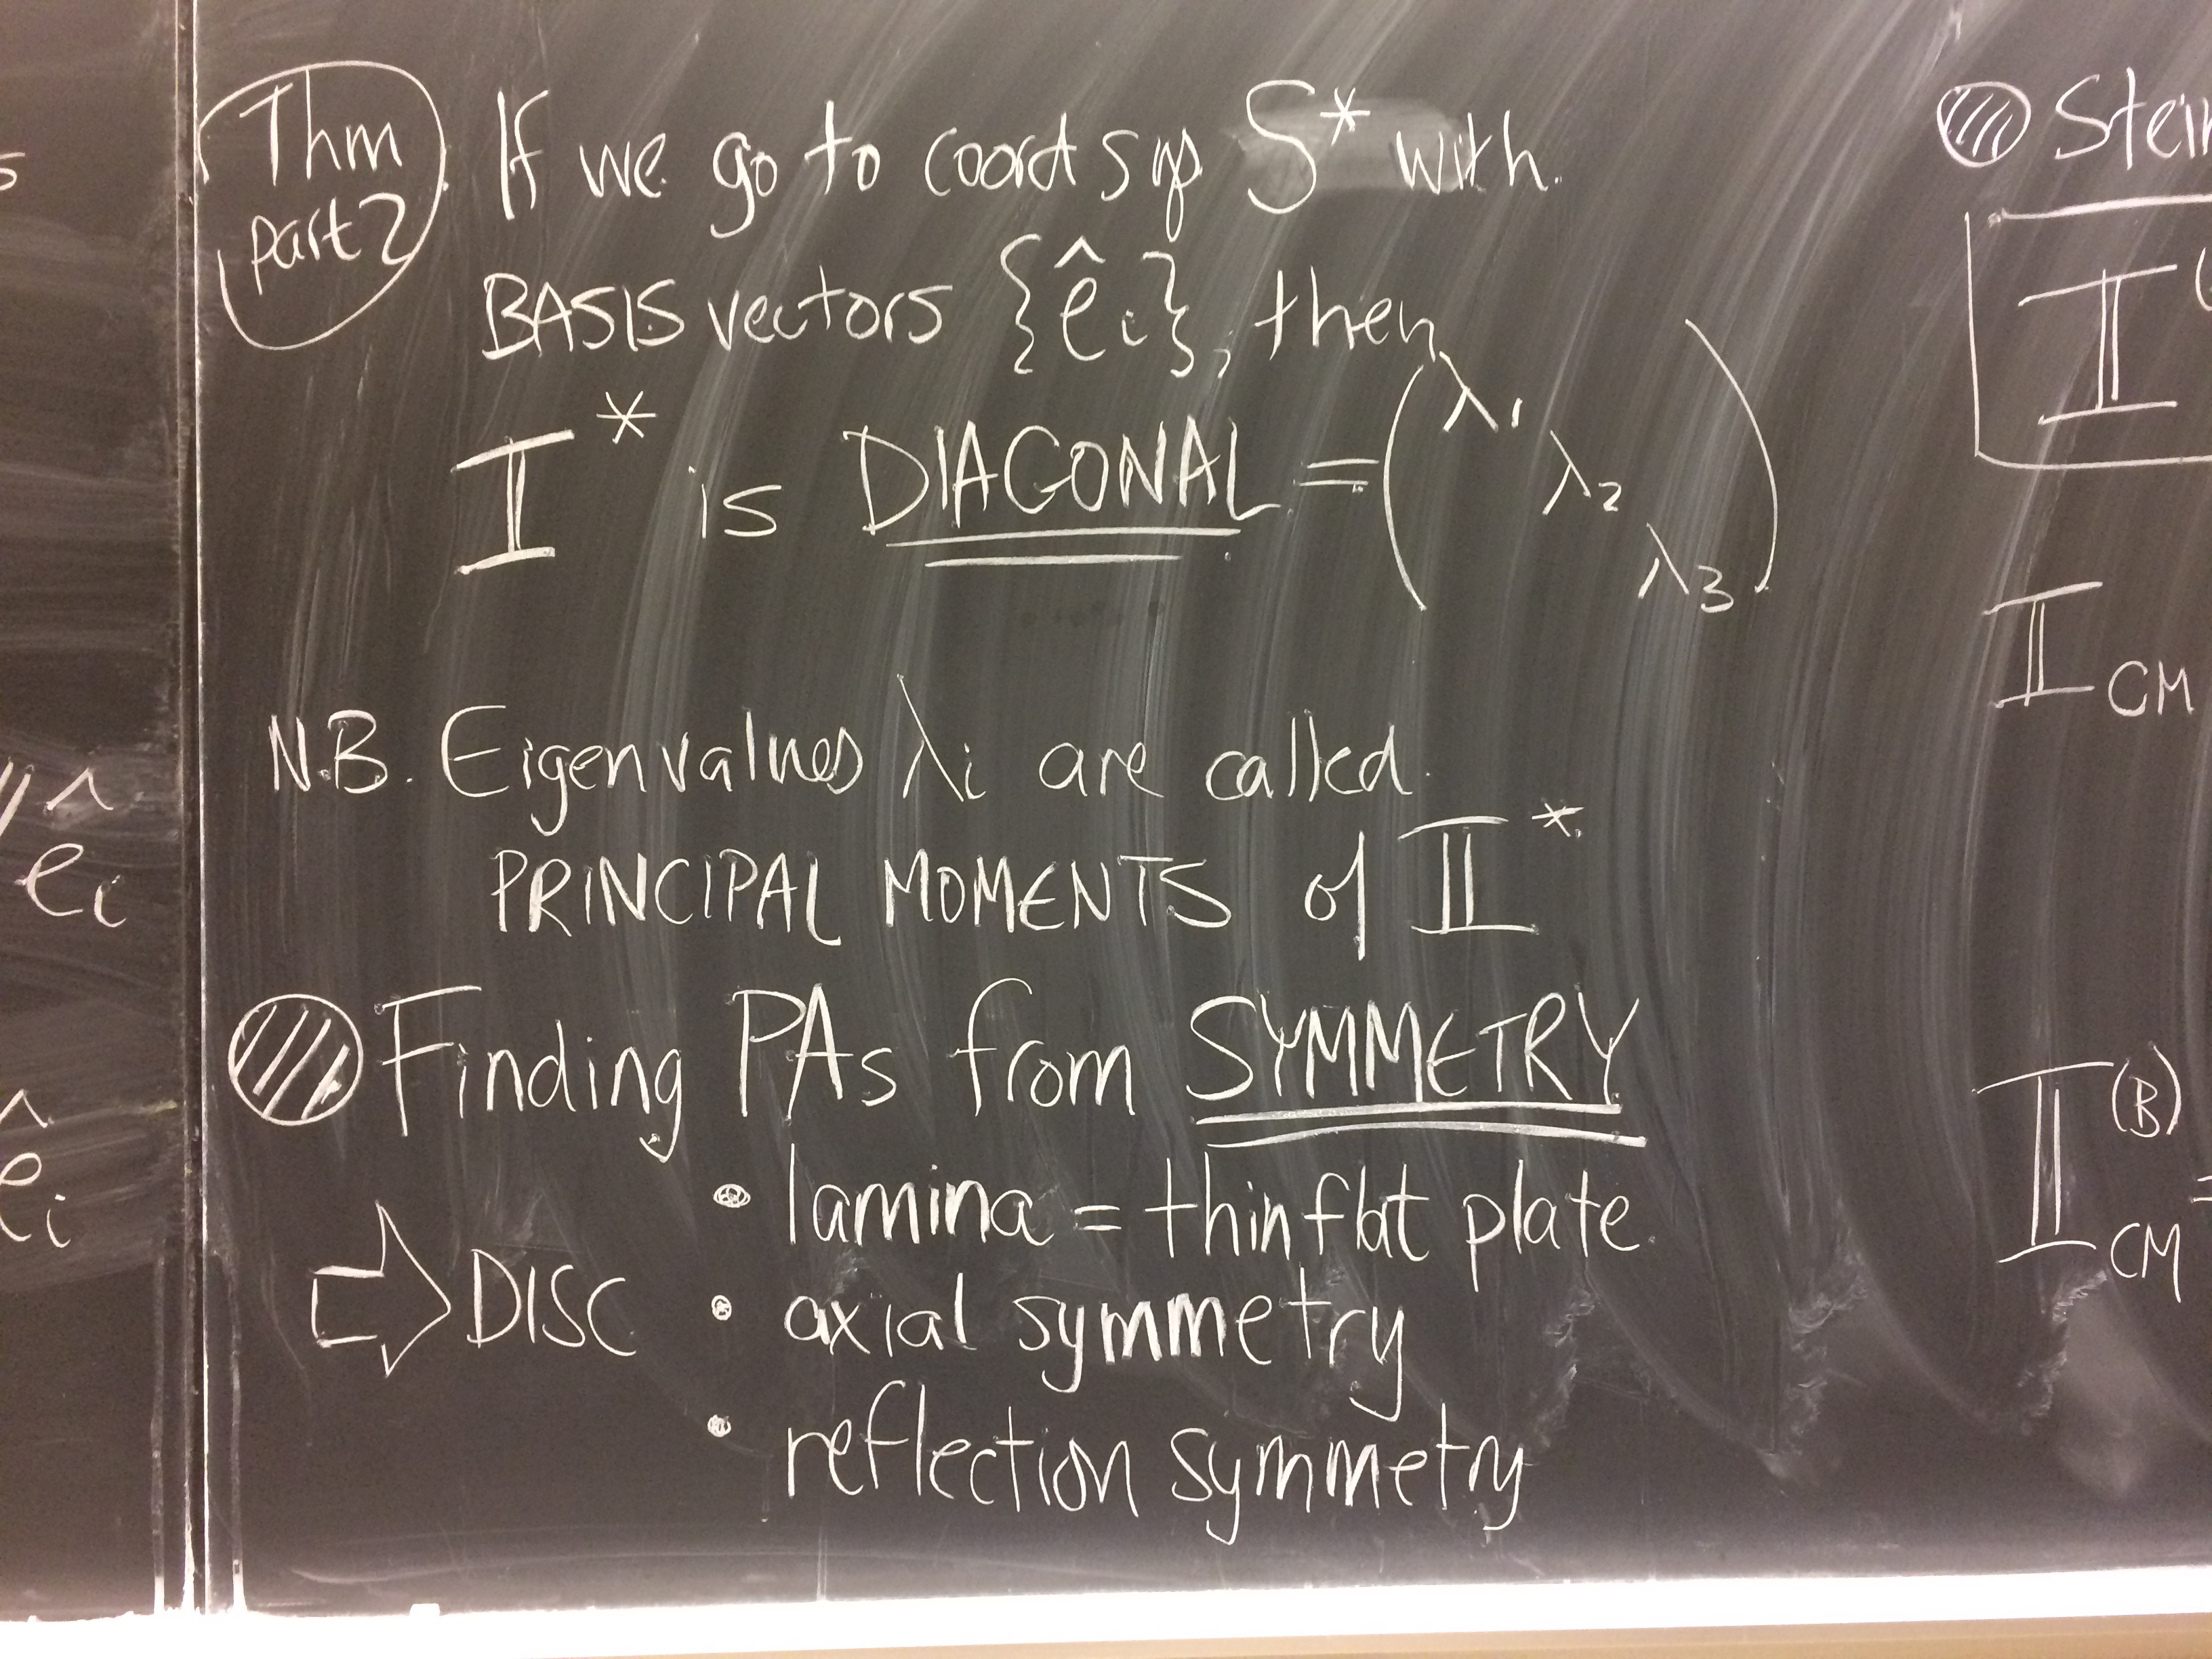 s
// ê_i
ê_i
Thm
part 2
If we go to coord sys S* with
BASIS vectors {ê_i}, then
𝕀* is DIAGONAL = (λ1
λ2
λ3)
N.B. Eigenvalues λi are called
PRINCIPAL MOMENTS of 𝕀*
Finding PAs from SYMMETRY
• lamina = thin flat plate
⇨ DISC • axial symmetry
• reflection symmetry
Stein
𝕀 (
𝕀 CM
𝕀 (B) CM =